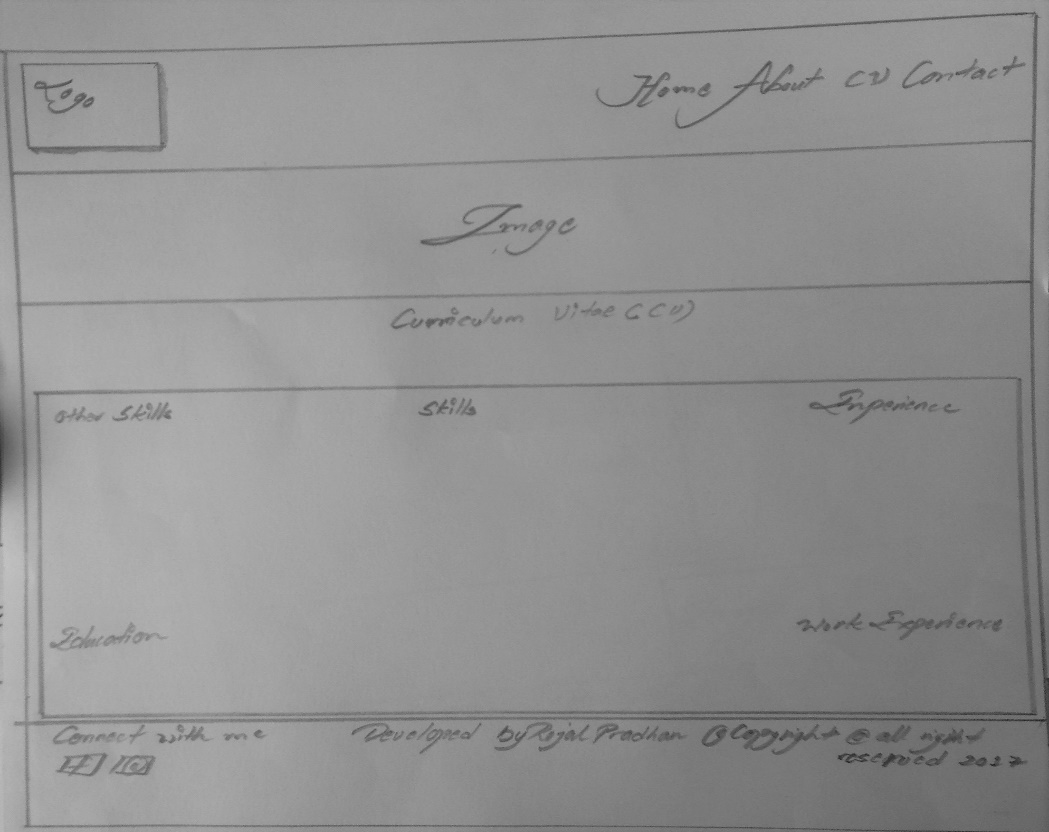 Logo
Home About CV Contact
Image
Curriculum Vitae (CV)
Other Skills Skills Experience
Education Work Experience
Connect with me Developed by Rojal Pradhan @ Copyright @ all right
reserved 2017
f